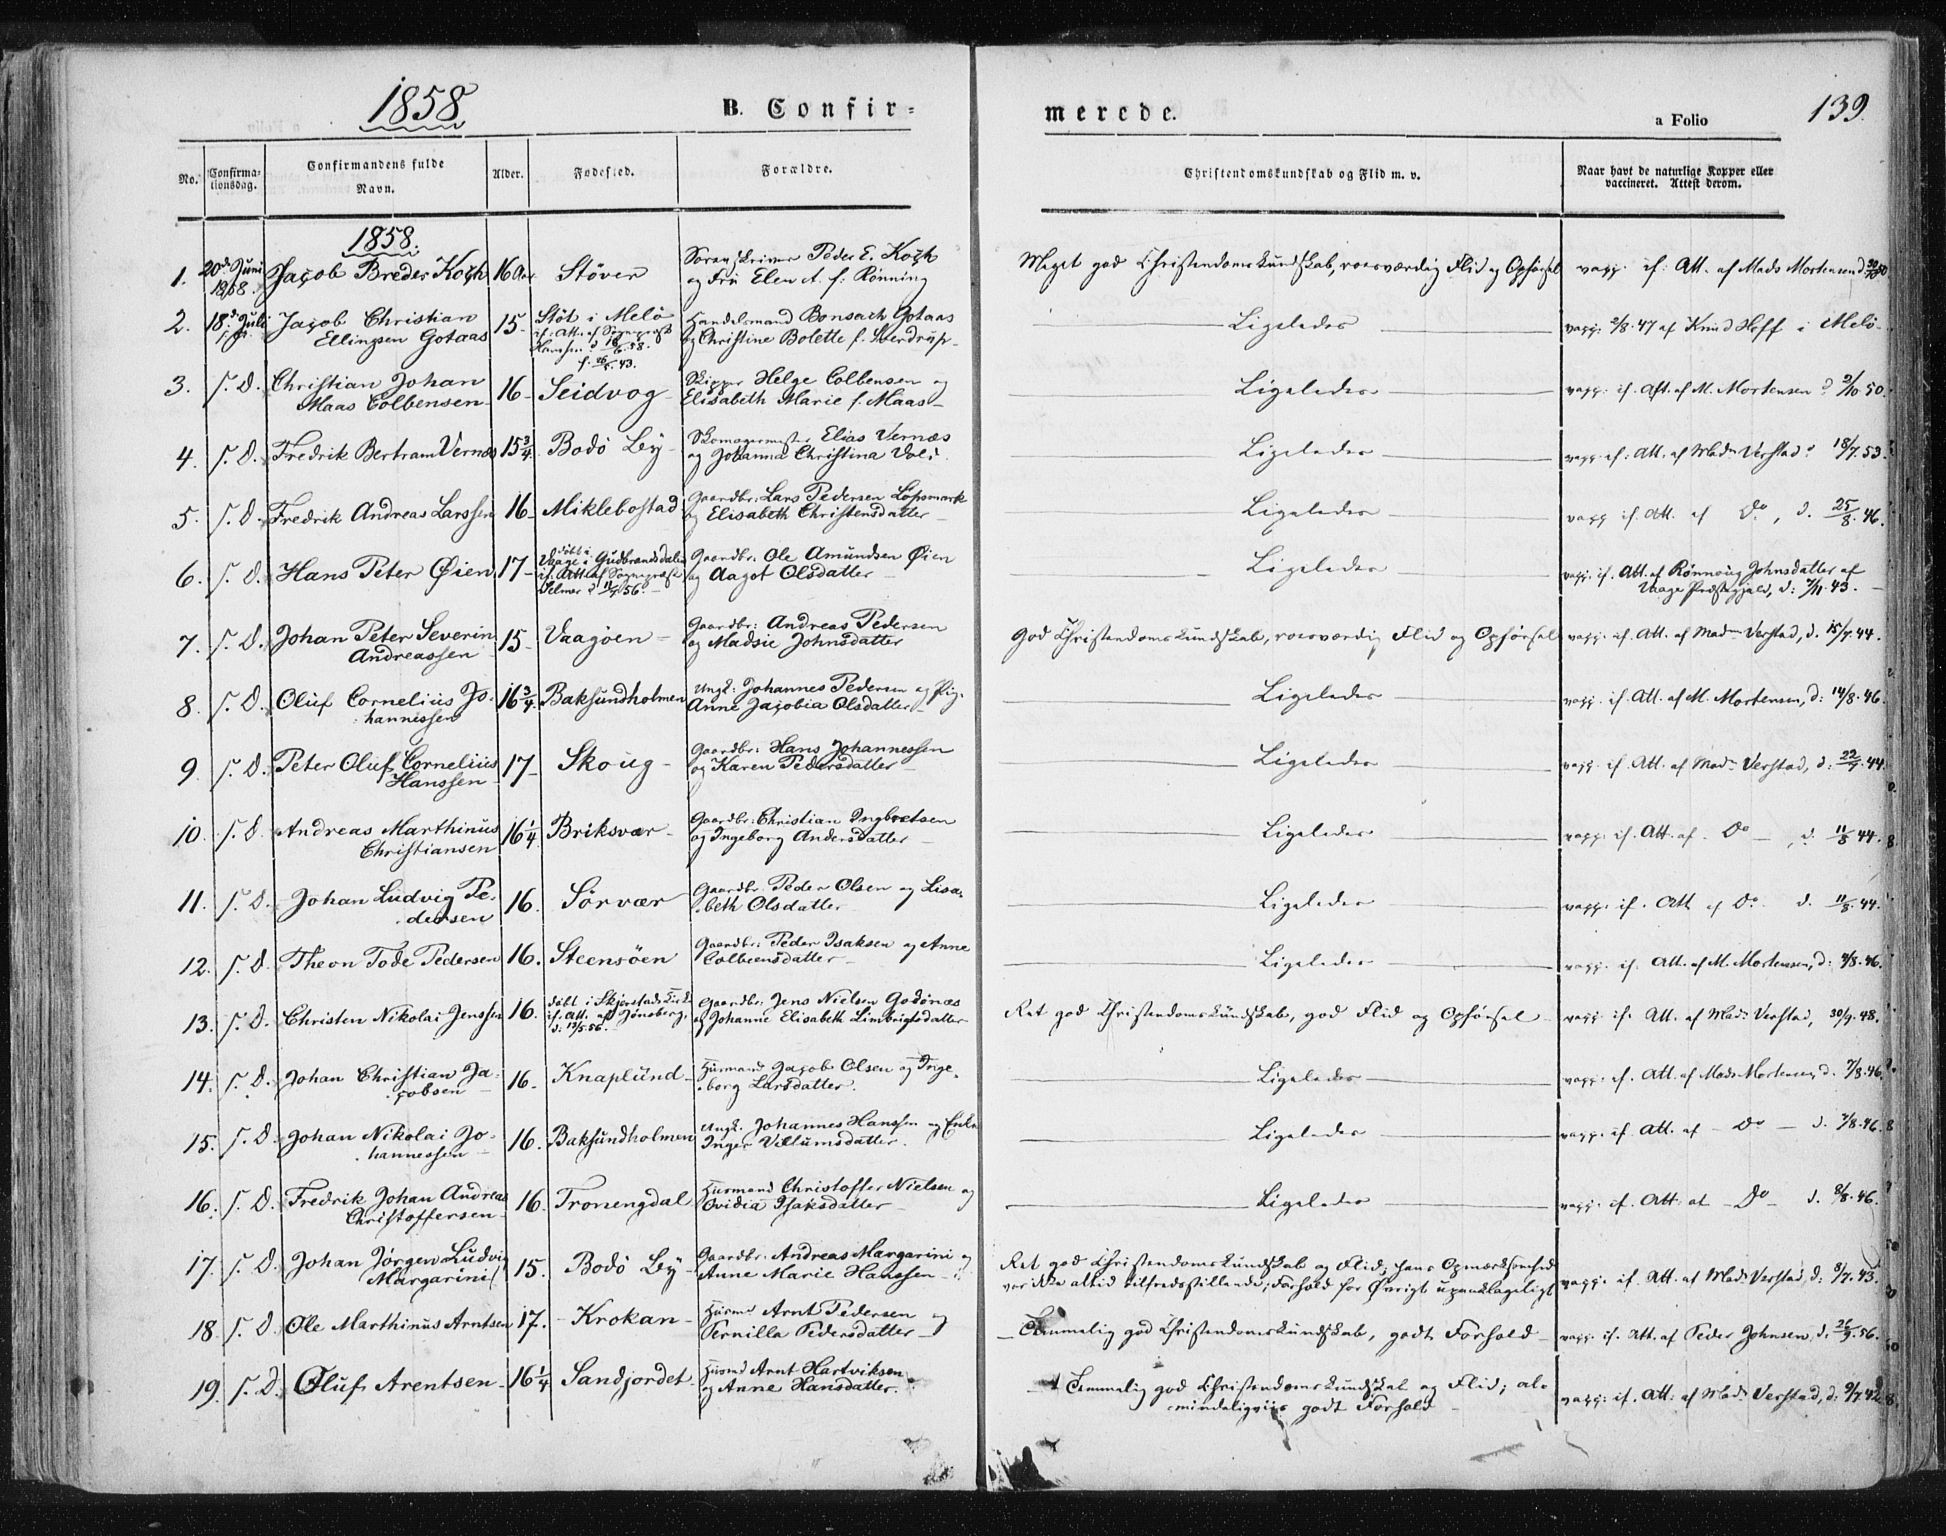 1858
B. Confir-
merede.
a Folio
139.
No.
Confirma-
tionsdag.
Confirmandens fulde
Navn.
Alder.
Fødested.
Forældre.
Christendomskundskab og Flid m. v.
Naar havt de naturlige Kopper eller
vaccineret. Attest derom.
1858.
1. 20de Juni 1858. Jacob Breder Koch 16 Aar Støver
Sorenskriver Peder E. Koch
og Fru Elen A. f. Rønning
Meget god Christendomskundskab, roesværdig Flid og Opførsel
vacc. if. Att. af Mads Mortensen d.
2. 18de Juli Jacob Christian
Ellingsen Gotaas
15- Støt i Melö
if. Att. af Sognepræst
Hansen
Handelsmand Bonsach Gotaas
og Christine Bolette f. Sverdrup-
Ligeledes
vacc. 2/8.47 af Knud Hoff i Melö-
3. s. D. Christian Johan
Maas Colbensen
16- Seidvog-
Skipper Helge Colbensen og
Elisabeth Marie f. Maas-
Ligeledes
vacc. if. Att. af M. Mortensen d. 9/10 50.
4. s. D. Fredrik Bertram Vernæs 15 3/4 Bodö By-
Skomagermester Elias Vernæs
og Johanna Christina
Ligeledes
vacc. if. Att. af Mad. Verstad d. 18/7.53.
5. s. D. Fredrik Andreas Larssen 16- Miklebostad
Gaardbr: Lars Pedersen Löpsmark
og Elisabeth Christensdatter
Ligeledes
vacc. if. Att. af Do, d. 25/8.46.
6. s. D. Hans Peter Øien 17-
døbt i
Vaage i Gudbrandsdalen
if. Att. af Sognepræst
Selmer d. 11/9 56.
Gaardbr: Ole Amundsen Øien
og Aagot Olsdatter
Ligeledes
vacc. if. Att. af Rønnoug Johnsdatter af
Vaage Præstegjeld, d: 7/11.43.
7. s. D. Johan Peter Severin
Andreassen
15- Vaagöen-
Gaardbr: Andreas Pedersen
og Madsie Johnsdatter
God Christendomskundskab, roesværdig Flid og Opførsel
vacc. if. Att. af Mad. Verstad, d. 15/7.44.
8. s. D. Oluf Cornelius Jo-
hannessen
16 3/4 Baksundholmen
Ungk: Johannes Pedersen og Pig.
Anne Jacobia Olsdatter
Ligeledes
vacc. if. Att. af M. Mortensen, d: 14/8.46.
9. s. D. Peter Oluf Cornelius
Hanssen
17- Skoug-
Gaardbr: Hans Johannessen
og Karen Pedersdatter
Ligeledes
vacc. if. Att. af Mad. Verstad, d: 22/9.44.
10. s. D. Andreas Marthinus
Christiansen
16 1/4 Briksvær-
Gaardbr: Christian Ingbretsen
og Ingeborg Andersdatter
Ligeledes
vacc. if. Att. af Do -, d. 11/8.44.
11. s. D. Johan Ludvig Pe-
dersen
16. Sörvær
Gaardbr: Peder Olsen og Lisa-
beth Olsdatter
Ligeledes
vacc. if. Att. af Do. d. 11/8.44.
12. s. D. Theon Tode Pedersen 16. Steensöen
Gaardbr: Peder Isaksen og Anne
Colbeensdatter
Ligeledes
vacc. if. Att. af M. Mortensen, d: 4/8.46.
13. s. D. Christen Nikolai Jenssen 16.
døbt i Skjerstad Kirke
if. Att. af Jönsberg,
d: 17/5.56.
Gaardbr: Jens Nielsen Godönæs
og Johanne Elisabeth Limbrigtsdatter
Ret god Christendomskundskab, god Flid og Opførsel
vacc. if. Att. af Mad. Verstad, 30/9.48.
14. s. D. Johan Christian Ja-
cobsen
16- Knaplund
Husmand Jacob Olsen og Inge-
borg Larsdatter.
Ligeledes
vacc. if. Att. af Mads Mortensen, d. 7/8.46.
15. s. D. Johan Nikolai Jo-
hannessen
16. Baksundholmen
Ungk. Johannes Hanssen og Enke
Inger Villumsdatter.
Ligeledes
vacc. if. Att. af - Do - d. 7/8.46.
16. s. D. Fredrik Johan Andreas
Christoffersen
16. Tronengdal
Husmand Christoffer Nielsen og
Ovidia Isaksdatter
Ligeledes
vacc. if. Att. af - Do - d. 8/8.46.
17. s. D. Johan Jörgen Ludvig
Margarini
15. Bodö By-
Gaardbr: Andreas Margarini og
Anne Marie Hanssen
Ret god Christendomskundskab og Flid; hans Opmærksomhed
var ikke altid tilfredsstillende; Forhold for Øvrigt upaaklageligt
vacc. if. Att. af Mad. Verstad, d: 8/7.43.
18. s. D. Ole Marthinus Arntsen 17. Krokan-
Husmd Arnt Pedersen og
Pernilla Pedersdatter
Temmelig god Christendomskundskab, godt Forhold
vacc. if. Att. af Peder Johnsen, d: 26/9.56.
19. s. D. Oluf Arentsen 16 1/4 Sandjordet
Husmd Arnt Hartviksen
og Anne Hansdatter.
Temmelig god Christendomskundskab og Flid; al-
mindeligviis godt Forhold
vacc. if. Att. af Mad. Verstad, d: 9/7.42